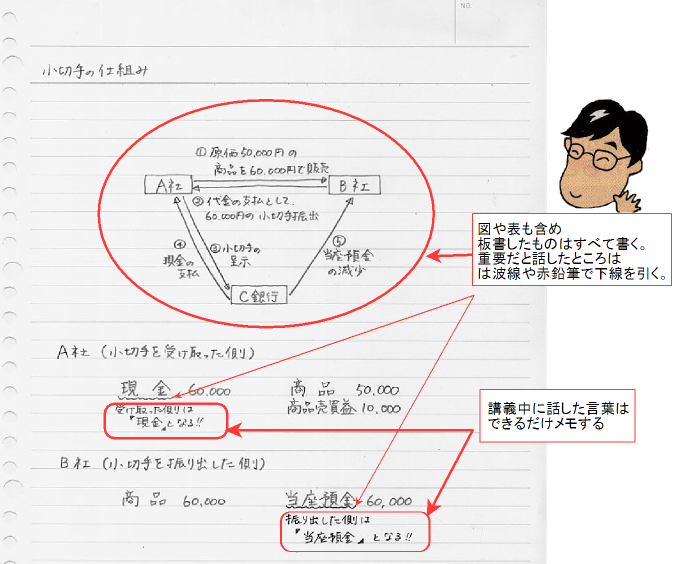 NO.
小切手の仕組み
①原価50,000円の
商品を60,000円で販売
A社
B社
②代金の支払として、
60,000円の小切手振出
④
現金の
支払
③小切手の
呈示
⑤
当座預金
の減少
C銀行
図や表も含め
板書したものはすべて書く。
重要だと話したところは
は波線や赤鉛筆で下線を引く。
A社（小切手を受け取った側）
現金 60,000 商品 50,000
商品売買益 10,000
受け取った側は
『現金』となる!!
講義中に話した言葉は
できるだけメモする
B社（小切手を振り出した側）
商品 60,000 当座預金 60,000
振り出した側は
『当座預金』となる!!